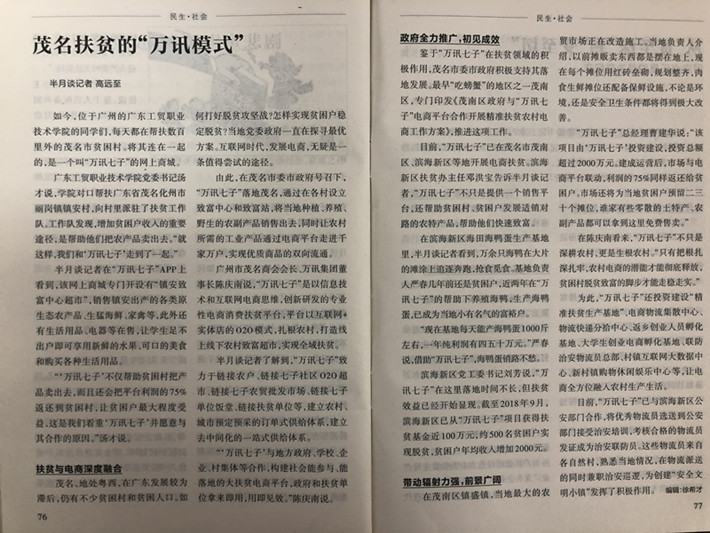 民生·社会
茂名扶贫的“万讯模式”
半月谈记者 高远至
如今，位于广州的广东工贸职业
技术学院的同学们，每天都在帮扶数百
里外的茂名市贫困村。将其连在一起
的，是一个叫“万讯七子”的网上商城。
广东工贸职业技术学院党委书记汤
才说，学院对口帮扶广东省茂名化州市
丽岗镇镇安村，向村里派驻了扶贫工作
队。工作队发现，增加贫困户收入的重要
途径，是帮助他们把农产品卖出去。“就
这样，我们和‘万讯七子’走到了一起。”
半月谈记者在“万讯七子”APP上
看到，该网上商城专门开设有“镇安致
富中心超市”，销售镇安出产的各类原
生态农产品、生猛海鲜、家禽等，此外还
有生活用品、电器等在售，让学生足不
出户即可享用新鲜的水果、可口的美食
和购买各种生活用品。
“‘万讯七子’不仅帮助贫困村把产
品卖出去，而且还会把平台利润的75%
返还到贫困村，让贫困户最大程度受
益，这是我们看重‘万讯七子’并愿意与
其合作的原因。”汤才说。
扶贫与电商深度融合
茂名，地处粤西，在广东发展较为
滞后，仍有不少贫困村和贫困人口，如
76
何打好脱贫攻坚战？怎样实现贫困户稳
定脱贫？当地党委政府一直在探寻最优
方案。互联网时代，发展电商，无疑是一
条值得尝试的途径。
由此，在茂名市委市政府号召下，
“万讯七子”落地茂名，通过在各村设立
致富中心和致富站，将当地种植、养殖、
野生的农副产品销售出去，同时让农村
所需的工业产品通过电商平台走进千
家万户，实现优质商品的双向流通。
广州市茂名商会会长、万讯集团董
事长陈庆南说，“万讯七子”是以信息技
术和互联网电商思维，创新研发的专业
性电商消费扶贫平台，平台以互联网+
实体店的O2O模式，扎根农村，打造线
上线下农村致富超市，实现全域扶贫。
半月谈记者了解到，“万讯七子”致
力于链接农户、链接七子社区O2O超
市、链接七子农贸批发市场、链接七子
单位饭堂、链接扶贫单位等，建立农村、
城市预定预采的订单式供给体系，建立
去中间化的一站式供给体系。
“‘万讯七子’与地方政府、学校、企
业、村集体等合作，构建社会能参与、能
落地的大扶贫电商平台，政府和扶贫单
位拿来即用，用即见效。”陈庆南说。
民生·社会
政府全力推广，初见成效
鉴于“万讯七子”在扶贫领域的积
极作用，茂名市委市政府积极支持其落
地发展。最早“吃螃蟹”的地区之一茂南
区，专门印发《茂南区政府与“万讯七
子”电商平台合作开展精准扶贫农村电
商工作方案》，推进这项工作。
目前，“万讯七子”已在茂名市茂南
区、滨海新区等地开展电商扶贫。滨海
新区扶贫办主任邓洪宝告诉半月谈记
者，“万讯七子”不只是提供一个销售平
台，还帮助贫困村、贫困户发展适销对
路的农特产品，帮助他们快速致富。
在滨海新区海田海鸭蛋生产基地
里，半月谈记者看到，万余只海鸭在大片
的滩涂上追逐奔跑，抢食觅食。基地负责
人严春儿年前还是贫困户，近两年在“万
讯七子”的帮助下养殖海鸭，生产海鸭
蛋，已成为当地小有名气的富裕户。
“现在基地每天能产海鸭蛋1000斤
左右，一年纯利润有四五十万元。”严春
说，借助“万讯七子”，海鸭蛋销路不愁。
滨海新区党工委书记刘芳说，“万
讯七子”在这里落地时间不长，但扶贫
效益已经开始显现。截至2018年9月，
滨海新区已从“万讯七子”项目获得扶
贫基金近100万元，约500名贫困户实
现脱贫，贫困户年均收入增加2000元。
带动辐射力强，前景广阔
在茂南区镇盛镇，当地最大的农
贸市场正在改造施工，当地负责人介
绍，以前摊贩卖东西都是摆在地上，现
在每个摊位用红砖垒砌，规划整齐，肉
食生鲜摊位还配备保鲜设施，不论是环
境，还是安全卫生条件都将得到极大改
善。
“万讯七子”总经理曹建华说：“该
项目由‘万讯七子’投资建设，投资总额
超过2000万元。建成运营后，市场与电
商平台联动，利润的75%同样返还给贫
困户。市场还将为当地贫困户预留二三
十个摊位，谁家有些零散的土特产、农
副产品都可以拿到这里免费售卖。”
在陈庆南看来，“万讯七子”不只是
深耕农村，更是生根农村。“只有把根扎
深扎牢，农村电商的潜能才能彻底释放，
贫困村脱贫致富的脚步才能走稳走实。”
为此，“万讯七子”还投资建设“精
准扶贫生产基地”、电商物流集散中心、
物流快递分拾中心、返乡创业人员孵化
基地、大学生创业电商孵化基地、联防
治安物流员总部、村镇互联网大数据中
心、新村镇购物休闲娱乐中心等，让电
商全方位融入农村生产生活。
目前，“万讯七子”已与滨海新区公
安部门合作，将优秀物流员选送到公安
部门接受治安培训，考核合格的物流员
发证成为治安联防员。这些物流员来自
各自然村，熟悉当地情况，在物流派送
的同时兼职治安巡逻，为创建“安全文
明小镇”发挥了积极作用。 编辑：徐希才
77